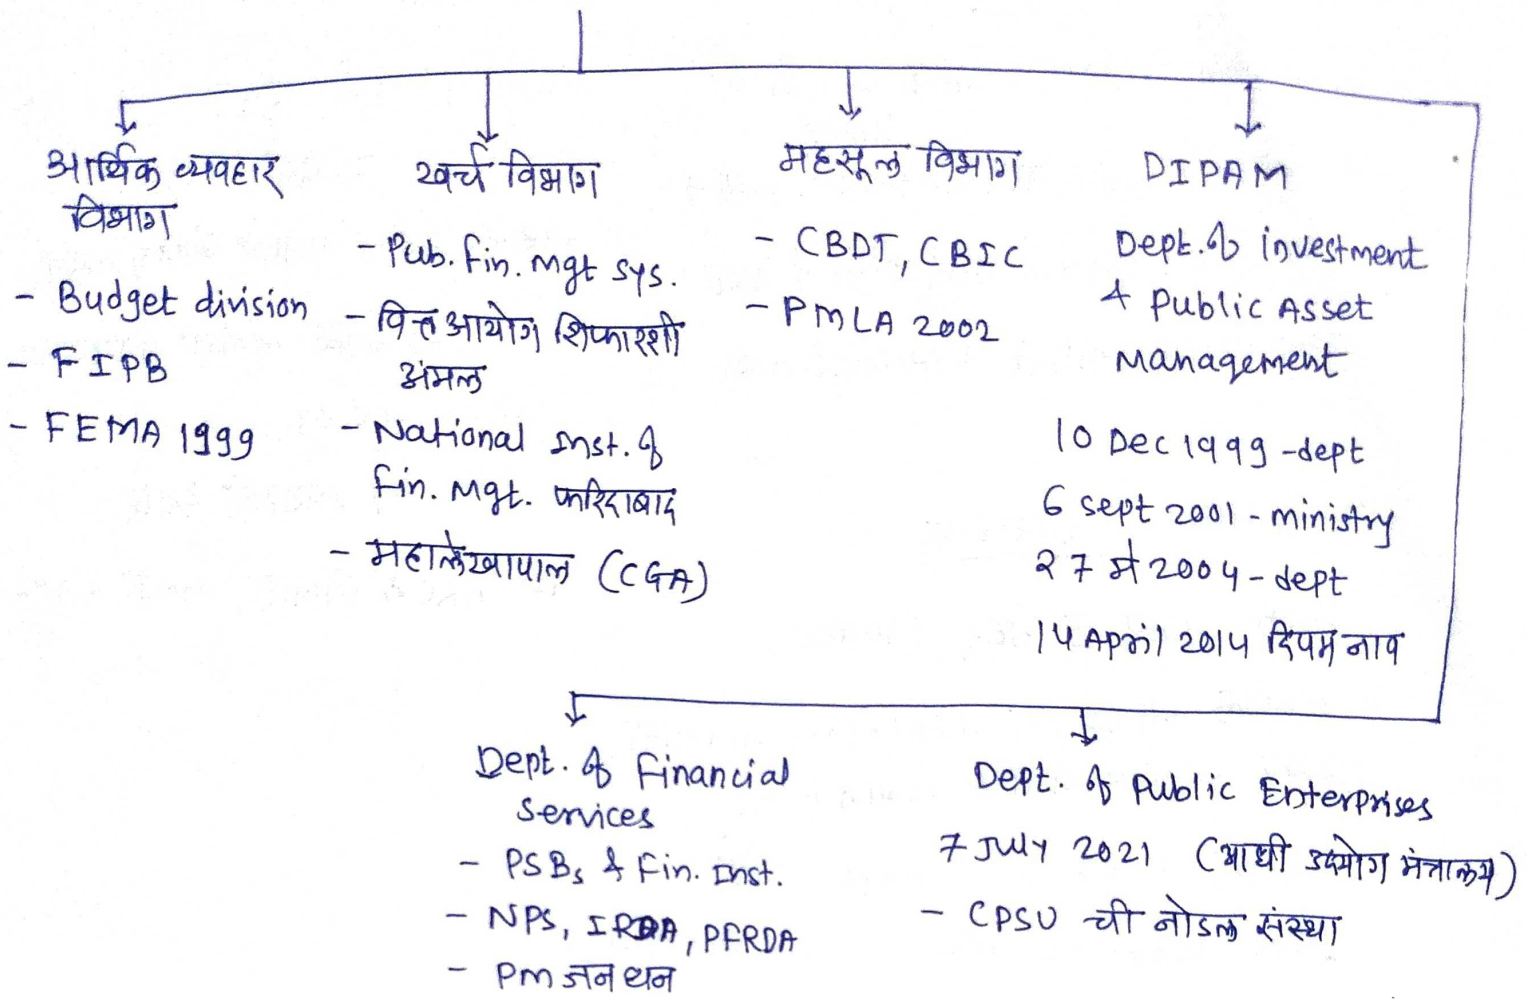 आर्थिक व्यवहार
विभाग
- Budget division
- FIPB
- FEMA 1999
खर्च विभाग
- Pub. fin. mgt sys.
- वित्त आयोग शिफारशी
अंमल
- National Inst. of
fin. Mgt. फरिदाबाद
- महालेखापाल (CGA)
महसूल विभाग
- CBDT, CBIC
- PMLA 2002
DIPAM
Dept. of investment
& Public Asset
Management
10 Dec 1999 - dept
6 sept 2001 - ministry
27 मे 2004 - dept
14 April 2014 दिपम नाव
Dept. of financial
services
- PSBs & fin. Inst.
- NPS, IRDA, PFRDA
- PM जन धन
Dept. of Public Enterprises
7 July 2021 (आधी उद्योग मंत्रालय)
- CPSU ची नोडल संस्था